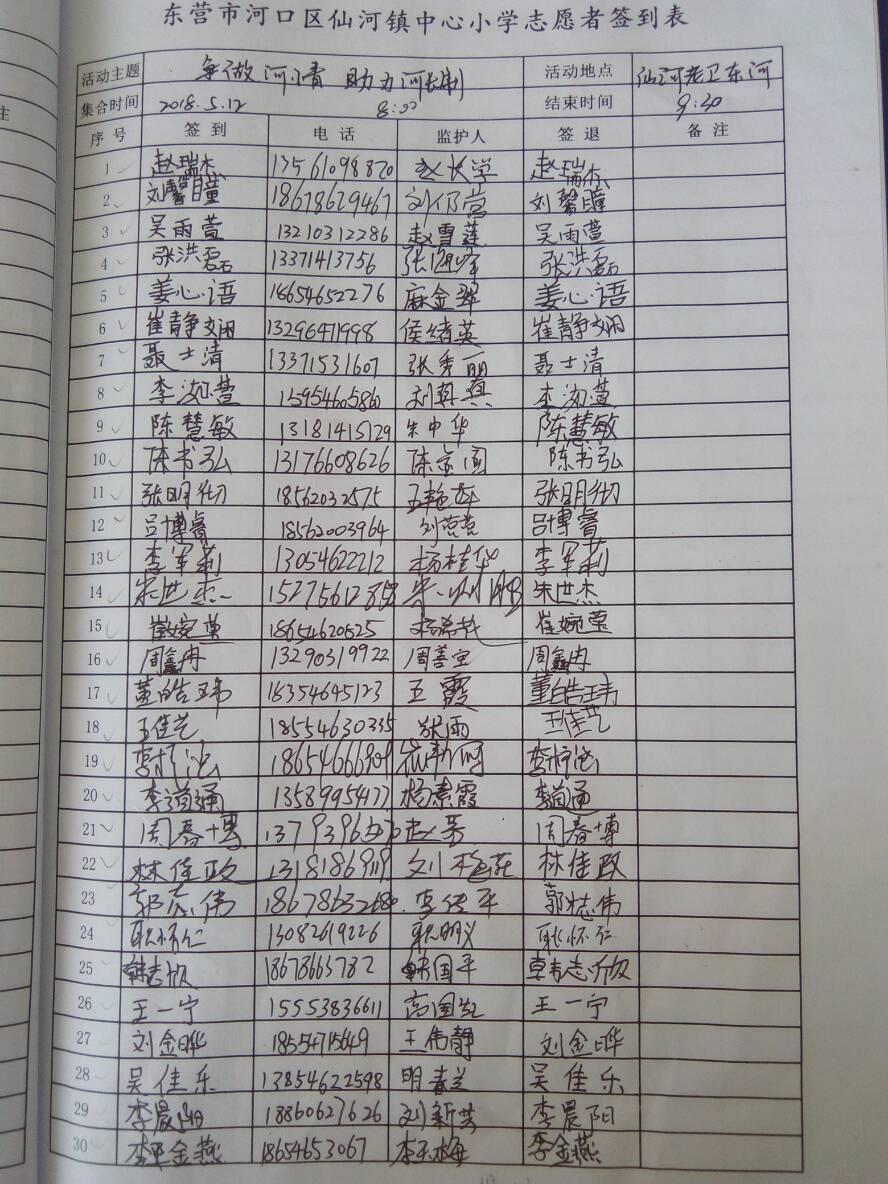 东营市河口区仙河镇中心小学志愿者签到表
活动主题 争做河小青 助力河长制 活动地点 仙河老卫东河
集合时间 2018.5.12 8:00 结束时间 9:30
序号 签到 电话 监护人 签退 备注
1 赵瑞杰 13561098820 赵长学 赵瑞杰
2 刘馨瞳 18678629467 刘仍营 刘馨瞳
3 吴雨萱 13210312286 赵雪莲 吴雨萱
4 张洪磊 13371413756 张海峰 张洪磊
5 姜心语 18654652276 麻金翠 姜心语
6 崔静娴 13296471998 侯绪英 崔静娴
7 聂士清 13371531607 张秀丽 聂士清
8 李淑萱 15954605860 李淑萱
9 陈慧敏 13181415729 朱中华 陈慧敏
10 陈书弘 13176608626 陈宗国 陈书弘
11 张明彻 18562032575 张明彻
12 吕博睿 18562003964 刘营营 吕博睿
13 李军莉 13054622212 杨桂华 李军莉
14 朱世杰 朱世杰
15 崔婉莹 18654620525 崔婉莹
16 周鑫冉 13290319922 周善宝 周鑫冉
17 董皓玮 18354645123 王霞 董皓玮
18 王佳艺 18554630335 耿雨 王佳艺
19 18654666909
20 李道通 13589954177 杨素霞 李道通
21 周春博 周春博
22 林佳政 林佳政
23 郭志伟 李传平 郭志伟
24 耿怀仁 13082619226 耿明义 耿怀仁
25 韩志顺 18678663782 韩国平 韩志顺
26 王一宁 15553836611 高国红 王一宁
27 刘金晔 18554715649 王伟静 刘金晔
28 吴佳乐 13854622598 明春兰 吴佳乐
29 李晨阳 18860627626 刘新芸 李晨阳
30 李金燕 18654653067 李玉梅 李金燕